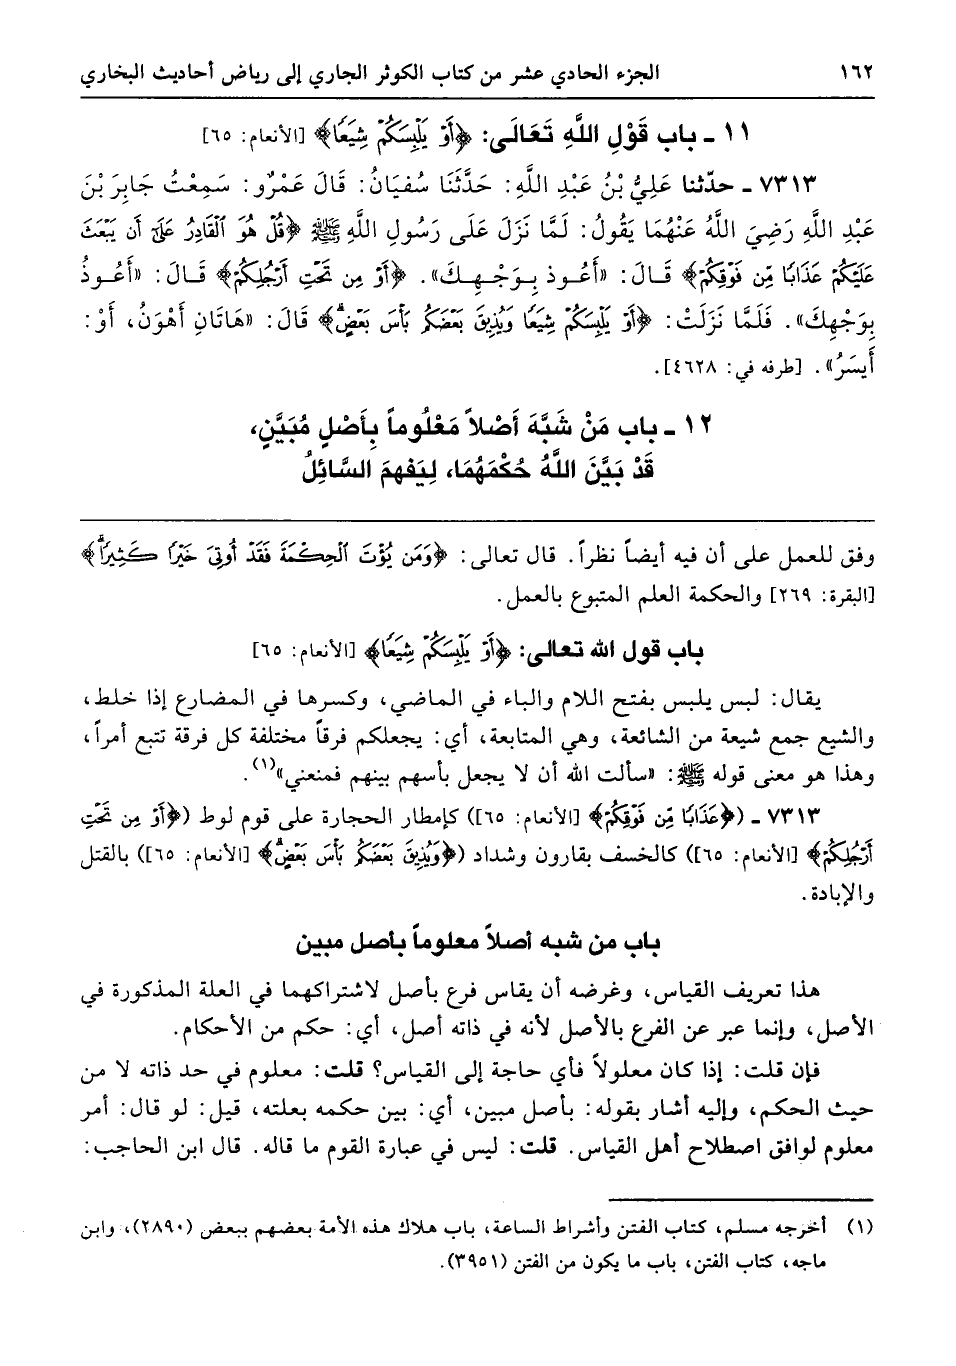 ١٦٢ الجزء الحادي عشر من كتاب الكوثر الجاري إلى رياض أحاديث البخاري
١١ ـ باب قَوْلِ اللَّهِ تَعَالَى: ﴿أَوْ يَلْبِسَكُمْ شِيَعًا﴾ [الأنعام: ٦٥]
٧٣١٣ ـ حدّثنا عَلِيُّ بْنُ عَبْدِ اللَّهِ: حَدَّثَنَا سُفيَانُ: قَالَ عَمْرٌو: سَمِعْتُ جَابِرَ بْنَ
عَبْدِ اللَّهِ رَضِيَ اللَّهُ عَنْهُمَا يَقُولُ: لَمَّا نَزَلَ عَلَى رَسُولِ اللَّهِ ﷺ ﴿قُلْ هُوَ ٱلْقَادِرُ عَلَىٰٓ أَن يَبْعَثَ
عَلَيْكُمْ عَذَابًا مِّن فَوْقِكُمْ﴾ قَالَ: «أَعُوذ بِوَجْهِكَ». ﴿أَوْ مِن تَحْتِ أَرْجُلِكُمْ﴾ قَالَ: «أَعُوذُ
بِوَجْهِكَ». فَلَمَّا نَزَلَتْ: ﴿أَوْ يَلْبِسَكُمْ شِيَعًا وَيُذِيقَ بَعْضَكُم بَأْسَ بَعْضٍ﴾ قَالَ: «هَاتَانِ أَهْوَنُ، أَوْ:
أَيسَرُ». [طرفه في: ٤٦٢٨].
١٢ ـ باب مَنْ شَبَّهَ أَصْلاً مَعْلُوماً بِأَصْلٍ مُبَيَّنٍ،
قَدْ بَيَّنَ اللَّهُ حُكْمَهُمَا، لِيَفهِمَ السَّائِلُ
وفق للعمل على أن فيه أيضاً نظراً. قال تعالى: ﴿وَمَن يُؤْتَ ٱلْحِكْمَةَ فَقَدْ أُوتِىَ خَيْرًا كَثِيرًا﴾
[البقرة: ٢٦٩] والحكمة العلم المتبوع بالعمل.
باب قول الله تعالى: ﴿أَوْ يَلْبِسَكُمْ شِيَعًا﴾ [الأنعام: ٦٥]
يقال: لبس يلبس بفتح اللام والباء في الماضي، وكسرها في المضارع إذا خلط،
والشيع جمع شيعة من الشائعة، وهي المتابعة، أي: يجعلكم فرقاً مختلفة كل فرقة تتبع أمراً،
وهذا هو معنى قوله ﷺ: «سألت الله أن لا يجعل بأسهم بينهم فمنعني»(١).
٧٣١٣ ـ (﴿عَذَابًا مِّن فَوْقِكُمْ﴾ [الأنعام: ٦٥]) كإمطار الحجارة على قوم لوط (﴿أَوْ مِن تَحْتِ
أَرْجُلِكُمْ﴾ [الأنعام: ٦٥]) كالخسف بقارون وشداد (﴿وَيُذِيقَ بَعْضَكُم بَأْسَ بَعْضٍ﴾ [الأنعام: ٦٥]) بالقتل
والإبادة.
باب من شبه أصلاً معلوماً بأصل مبين
هذا تعريف القياس، وغرضه أن يقاس فرع بأصل لاشتراكهما في العلة المذكورة في
الأصل، وإنما عبر عن الفرع بالأصل لأنه في ذاته أصل، أي: حكم من الأحكام.
فإن قلت: إذا كان معلولاً فأي حاجة إلى القياس؟ قلت: معلوم في حد ذاته لا من
حيث الحكم، وإليه أشار بقوله: بأصل مبين، أي: بين حكمه بعلته، قيل: لو قال: أمر
معلوم لوافق اصطلاح أهل القياس. قلت: ليس في عبارة القوم ما قاله. قال ابن الحاجب:
(١) أخرجه مسلم، كتاب الفتن وأشراط الساعة، باب هلاك هذه الأمة بعضهم ببعض (٢٨٩٠)، وابن
ماجه، كتاب الفتن، باب ما يكون من الفتن (٣٩٥١).